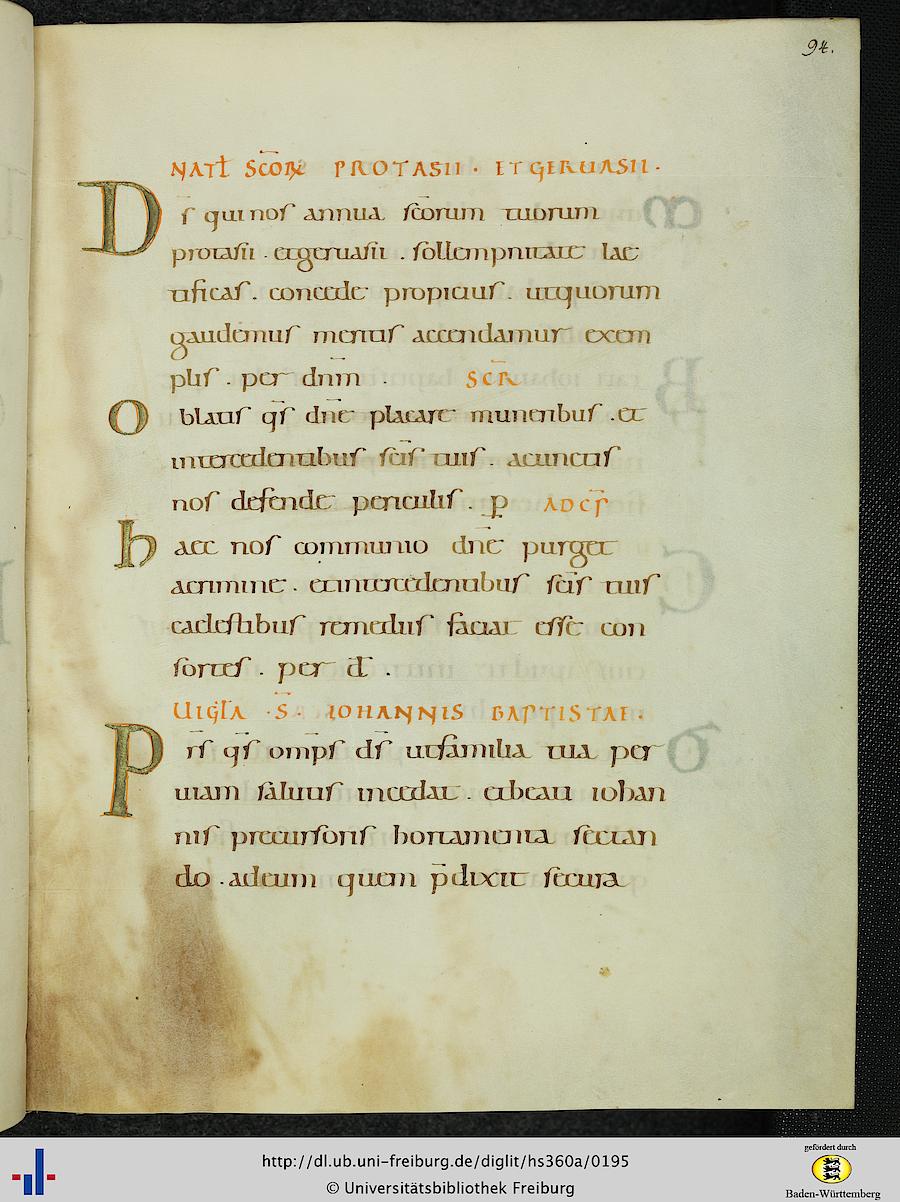 94.
NATL SCORU PROTASII · ET GERUASII ·
Ds qui nos annua scorum tuorum
protasii . et geruasii . sollempnitate lae
tificas . concede propicius . ut quorum
gaudemus meritis accendamur exem
plis . per dnm . SCR
Oblatis qs dne placare muneribus . et
intercedentibus scis tuis . a cunctis
nos defende periculis . p AD CP
haec nos communio dne purget
a crimine . et intercedentibus scis tuis
caelestibus remediis faciat esse con
sortes . per d .
UIGLA · S · IOHANNIS BAPTISTAE ·
Prs qs omps ds ut familia tua per
uiam salutis incedat . et beati iohan
nis precursoris hortamenta sectan
do . ad eum quem pdixit secura
http://dl.ub.uni-freiburg.de/diglit/hs360a/0195
© Universitätsbibliothek Freiburg
gefördert durch
Baden-Württemberg